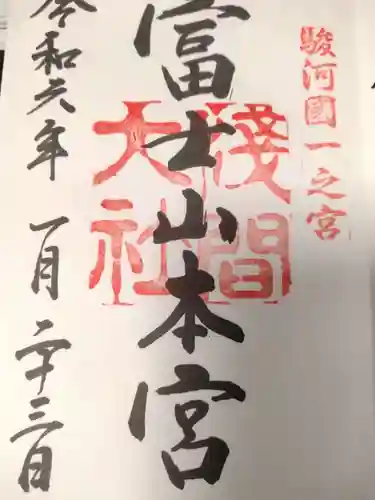 駿河國一之宮
富士山本宮
淺間
大社
令和六年 一月 二十三日